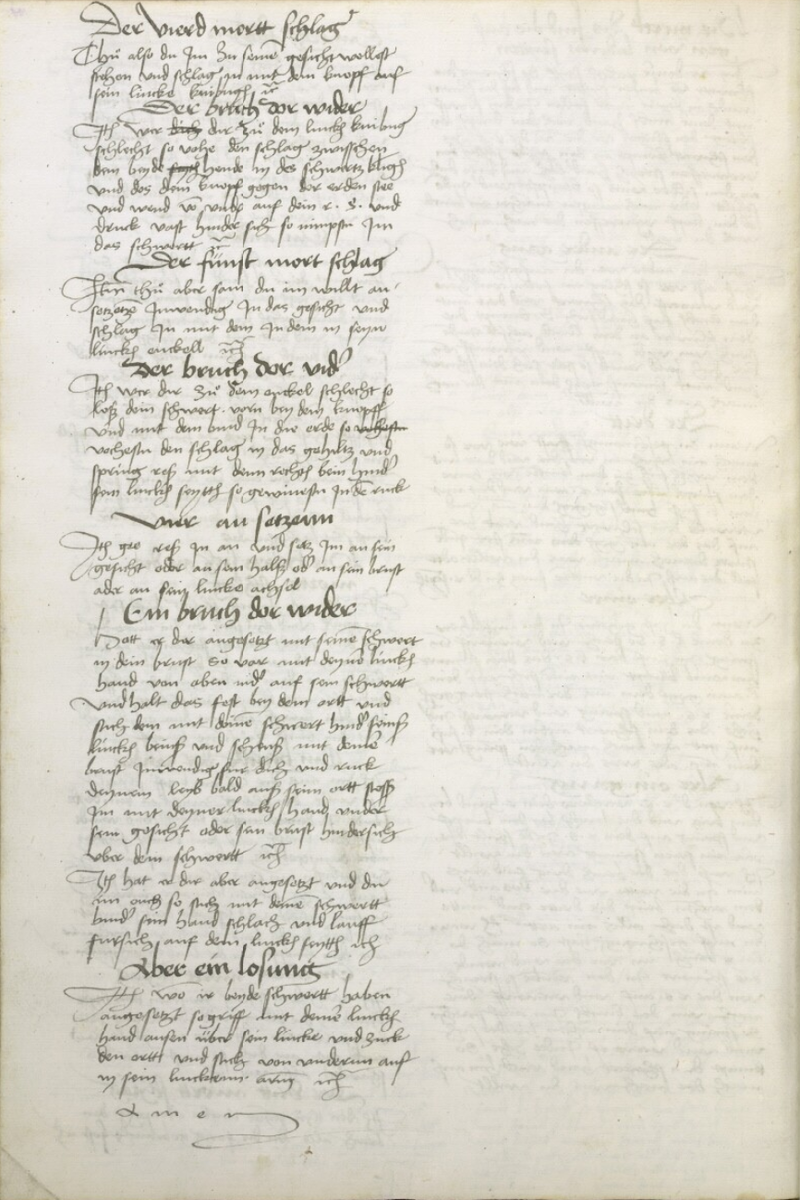 Der vierd mortt schlag
Thu also du Im Zu seine gesicht wollest
stechen vnd schlag in mit dem knopf auf
sein lincke knibugh ic
Der bruch dor wider
Ith wer dich dir Zu dem linckh knibug
schlecht so vohe den schlag zwisschen
dein beyde hende in des schwertz klige
vnd das dein knopf gegen der erden stee
vnd wend vo vnde auf dein r. s. vnd
druck vast hinder sich so nimpstu Im
das schwertt ic
Der funfft mort schlag
Item thu aber sam du im wollt an
setzen Inwendig In das gesicht vnd
schlag In mit dem In dem in seyn
linckh enckell ic
Der bruch dor wid
Ith wer dir Zu dem enckel schlecht so
losz dein schwert vorn bey dem knopff
vnd mit dem bind In die erde so vechestu
vechestu den schlag in das gehultz vnd
spring resch mit dem rechth bein hind
sein linckh seytth so gewinestu In de ruck
Vier an setzenn
Ith gee resch In an vnd setz Im an sein
gesicht oder an sein halsz od an sein brust
oder an sein lincke achsel
Ein bruch dor wider
Hatt er dir angesetzt mit seine schwert
in dein brust so var mit deyne linckh
hand von oben nid auf sein schwertt
vnd halt das fest bey dem ortt vnd
stich dein mit deine schwert hind seinsz
linckh beinsz vnd scheusz mit deine
brust Inwendig fur dich vnd ruck
deynem leyb bald ausz seim ortt stosz
Im mit deyner linckh hand vnder
sein gesicht oder sein brust hindersich
vber dein schwertt ich
Ith hat er dir aber angesetzt vnd du
im auch so stich mit deine schwertt
hind sein hand schlach vnd lauff
fursich auf dein linckh seytth ich
Aber ein losung
Ith wo ir beyde schwertt haben
angesetzt so griff mit deine linckh
hand ausen uber sein lincke vnd zuck
den ortt vnd stich von vnderun auf
in sein linckenn arm ich
A m e n